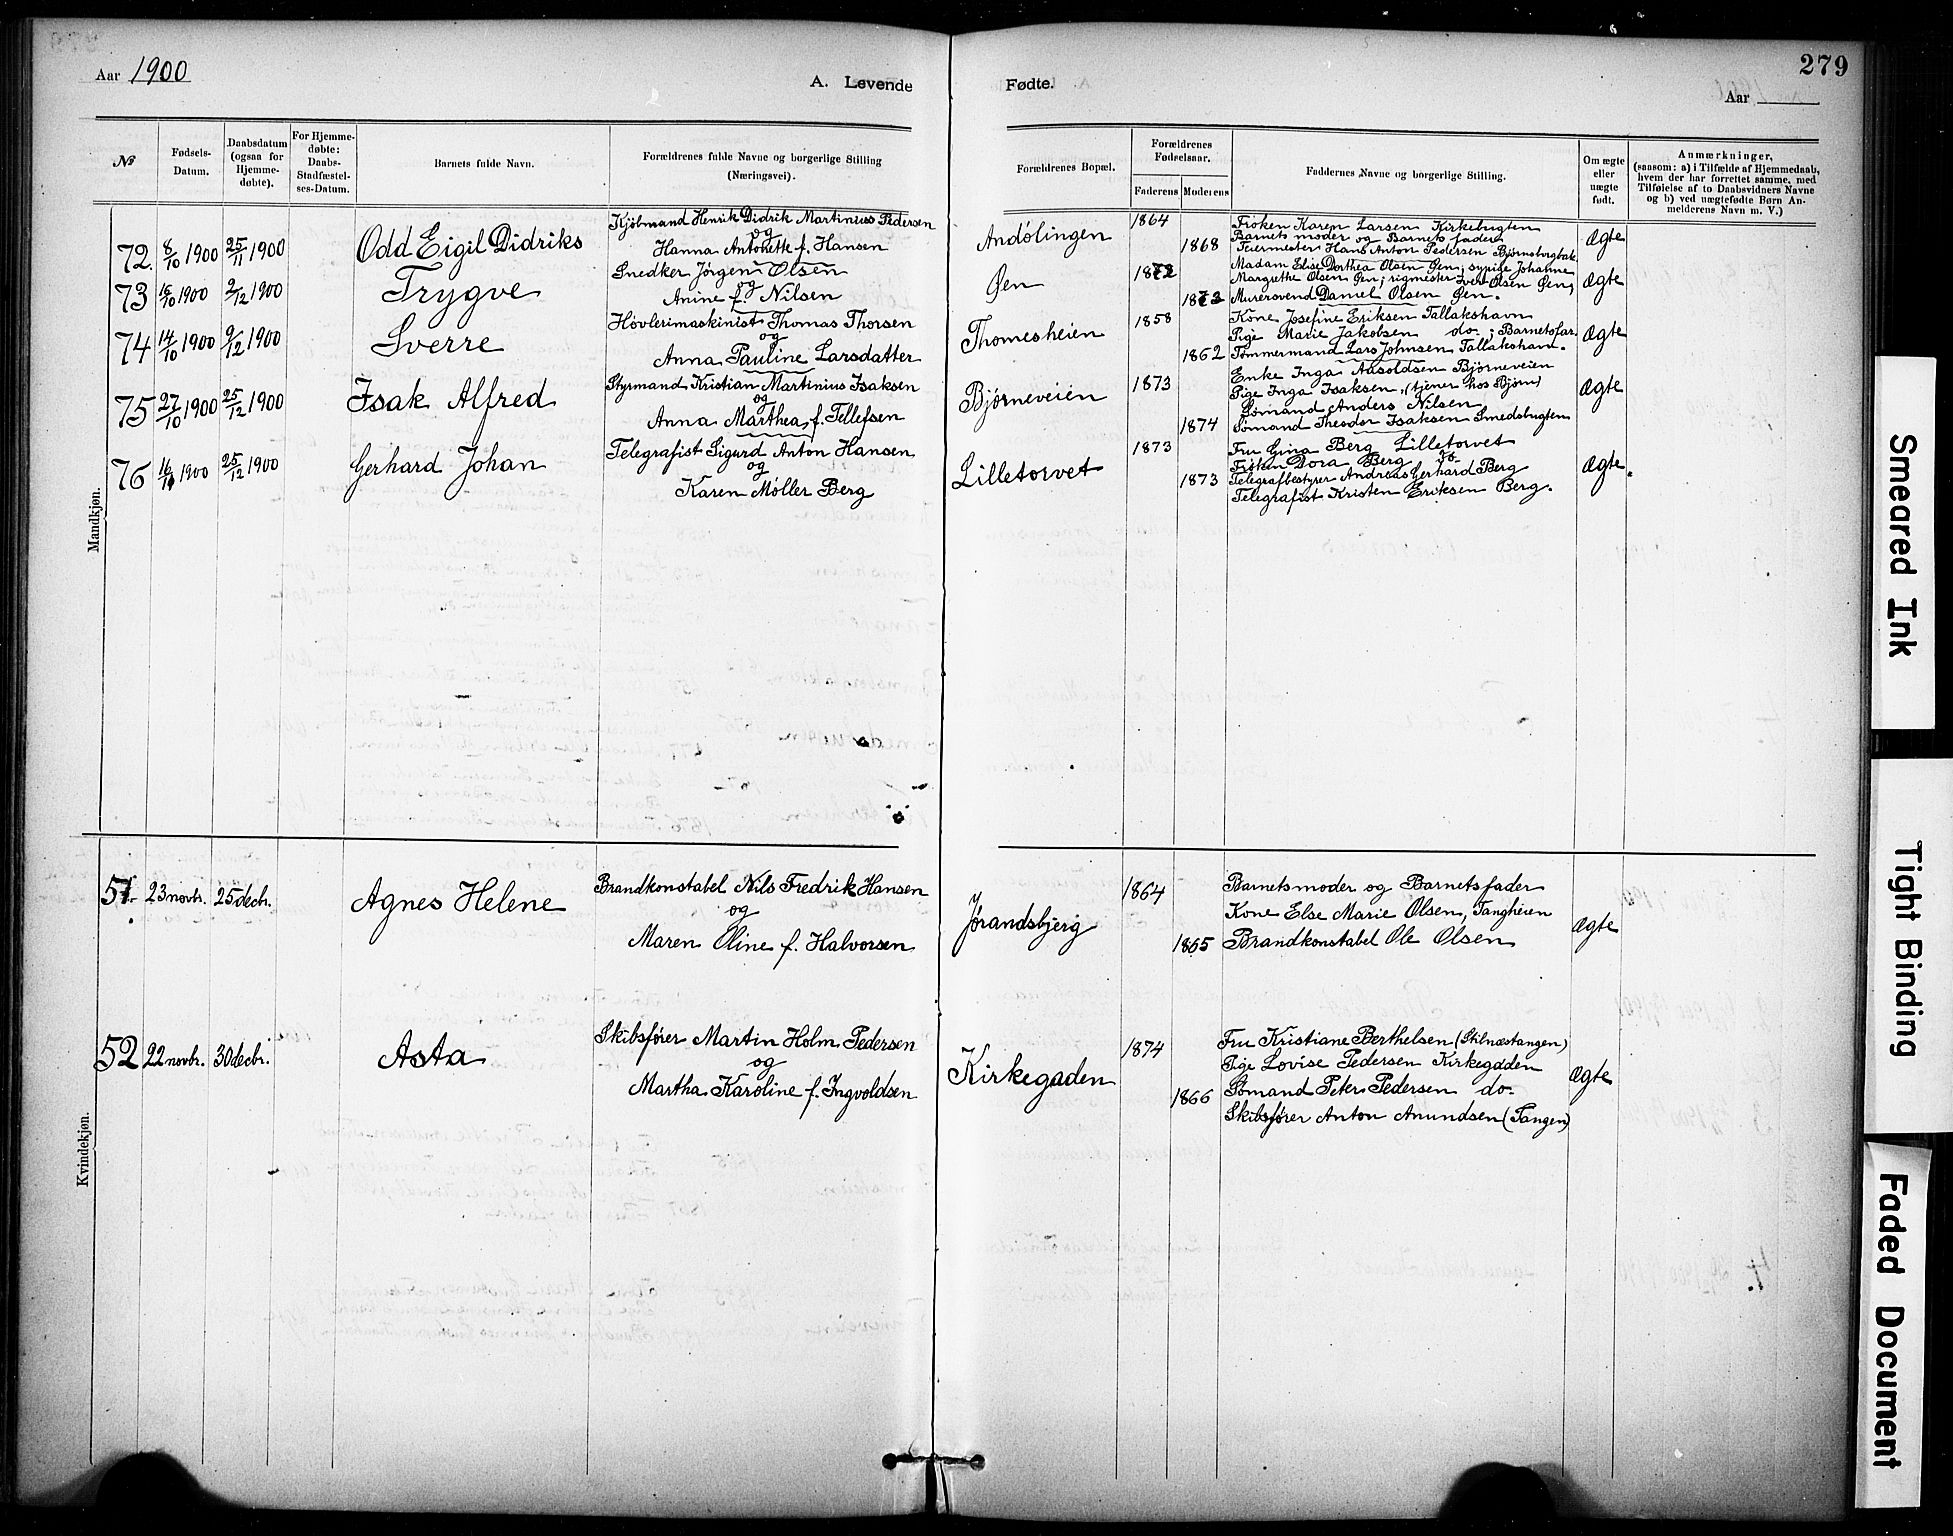 Aar 1900
A. Levende Fødte.
279
Aar
№
Fødsels-Datum.
Daabsdatum (ogsaa for Hjemme-døbte).
For Hjemme-døbte: Daabs-Stadfæstel-ses-Datum.
Barnets fulde Navn.
Forældrenes fulde Navne og borgerlige Stilling (Næringsvei).
Forældrenes Bopæl.
Forældrenes Fødselsaar.
Faderens Moderens
Faddernes Navne og borgerlige Stilling.
Om ægte eller uægte født.
Anmærkninger,
(saasom: a) i Tilfælde af Hjemmedaab,
hvem der har forrettet samme, med
Tilføielse af to Daabsvidners Navne
og b) ved uægtefødte Børn An-
melderens Navn m. V.)
Mandkjøn.
72. 8/10 1900 25/11 1900 Odd Eigil Didriks
Kjøbmand Henrik Didrik Martinius Pedersen
og
Hanna Antonette f. Hansen
Andólingen 1864 1868
Frøken Karen Larsen Kirkebugten
Barnets moder og Barnets fader
Feiermester Hans Anton Pedersen Bjørnsbugbak.
Ægte
73 1900 2/12 1900 Trygve
Snedker Jörgen Olsen
og
Anine f. Nilsen
Øen 1872
Madam Elise Dorthea Olsen Øen, sypige Johanne
Margrethe Olsen Øen; rigmester Ivert Olsen Øen,
Murersvend Daniel Olsen Øen.
Ægte
74 14/10 1900 9/12 1900 Sverre
Høvlerimaskinist Thomas Thorsen
og
Anna Pauline Larsdatter
Thomesheien 1858 1862
Kone Josefine Eriksen Tallakshavn
Pige Marie Jakobsen do.; Barnetsfar.
Tømmermand Lars Johnsen Tallakshavn.
Ægte
75 27/10 1900 25/12 1900 Isak Alfred
Styrmand Kristian Martinius Isaksen
og
Anna Marthea, f. Tellefsen
Bjørneveien 1873 1874
Enke Inga Aasoldsen Bjørneveien
Pige Inga Isaksen, (tjener hos Bjørn)
Sømand Anders Nilsen
Sømand Theodor Isaksen Smedsbugten
Ægte
76 1900 25/12 1900 Gerhard Johan
Telegrafist Sigurd Anton Hansen
og
Karen Møller Berg
Lilletorvet 1873 1873
Fru Gina Berg Lilletorvet
Frøken Dora Berg do.
Telegrafbestyrer Andreas Gerhard Berg
Telegrafist Kristen Eriksen Berg.
Ægte.
Kvindekjøn.
51. 23 novbr. 25 decbr. Agnes Helene
Brandkonstabel Nils Fredrik Hansen
og
Maren Oline f. Halvorsen
Jørandsbjerg 1864 1865
Barnets moder og Barnets fader
Kone Else Marie Olsen, Tangheien
Brandkonstabel Ole Olsen
Ægte
52 22 novbr. 30 decbr. Asta
Skibsfører Martin Holm Pedersen
og
Martha Karoline f. Ingvoldsen
Kirkegaden 1874 1866
Fru Kristiane Berthelsen (Stilnæstangen)
Pige Lovise Pedersen Kirkegaden
Sømand Peter Pedersen do.
Skibsfører Anton Amundsen (Tangen)
Ægte
Smeared Ink
Tight Binding
Faded Document